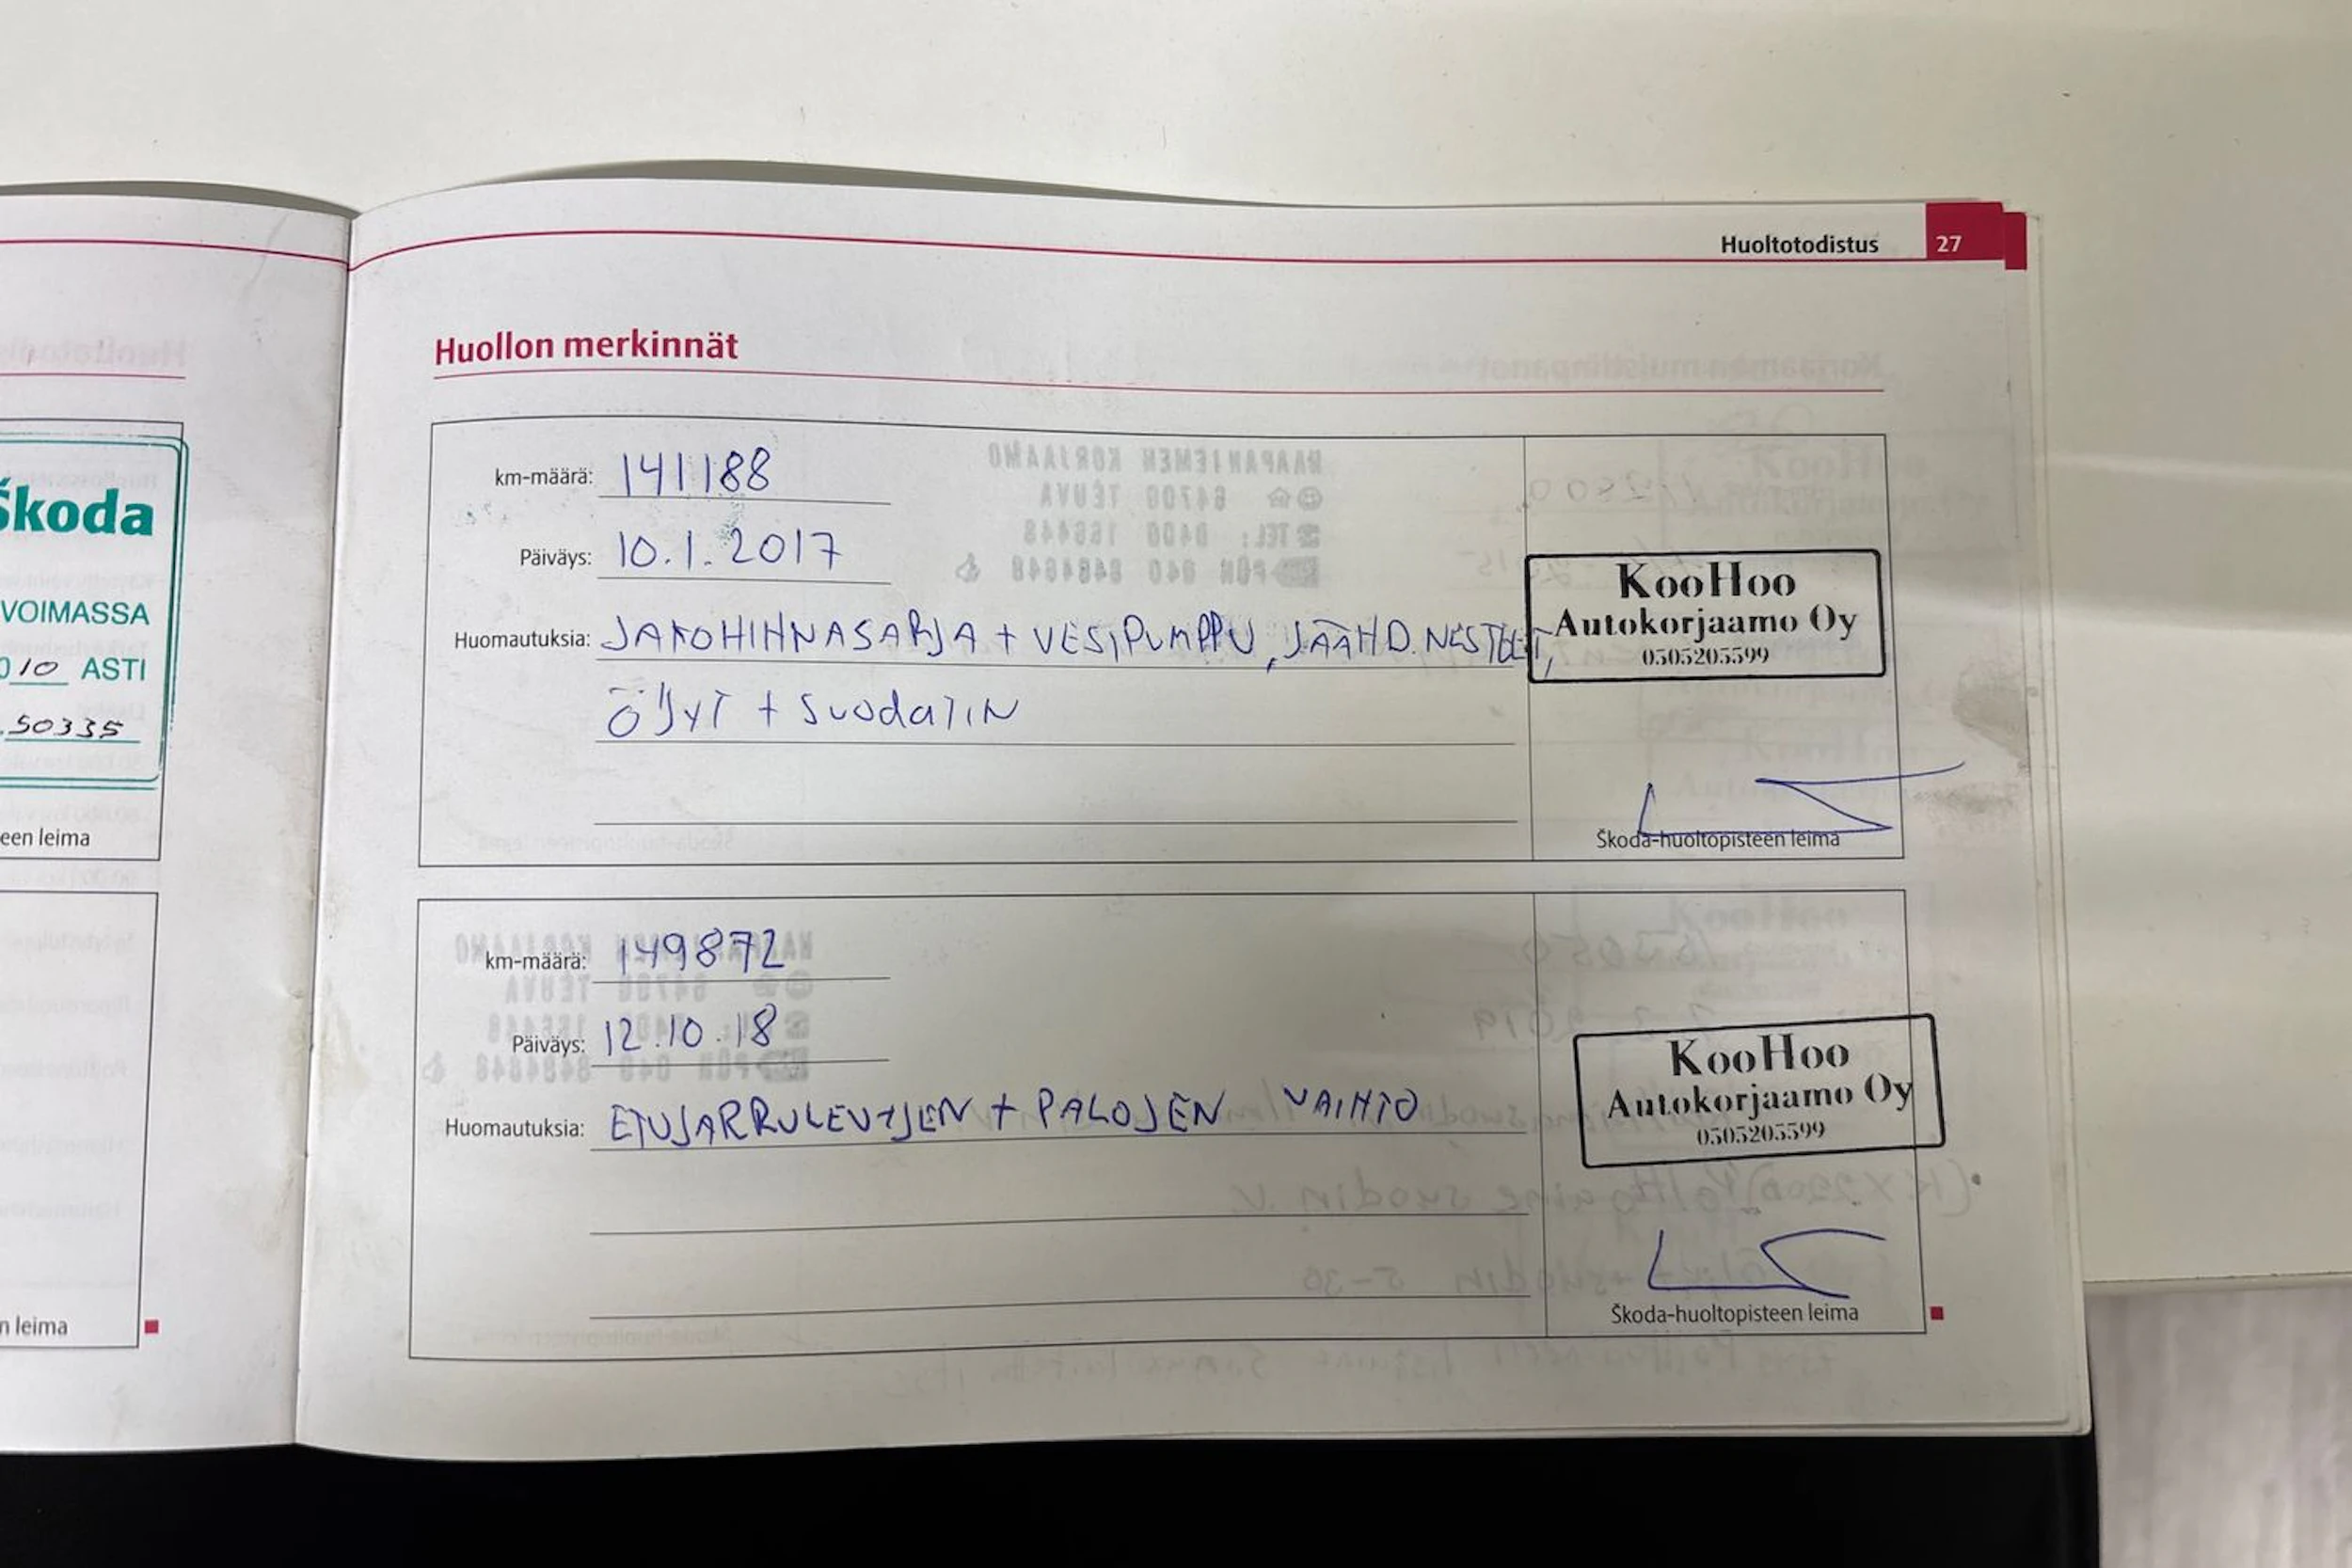 Škoda
VOIMASSA
10 ASTI
50335
een leima
n leima
Huoltotodistus 27
Huollon merkinnät
km-määrä: 141188
Päiväys: 10.1.2017
Huomautuksia: JAKOHIHNASARJA + VESIPUMPPU, JÄÄHD.NESTEET,
ÖljyT + SuodaTIN
KooHoo
Autokorjaamo Oy
0505205599
Škoda-huoltopisteen leima
km-määrä: 149872
Päiväys: 12.10.18
Huomautuksia: ETUJARRULEVYJEN + PALOJEN VAIHTO
KooHoo
Autokorjaamo Oy
0505205599
Škoda-huoltopisteen leima